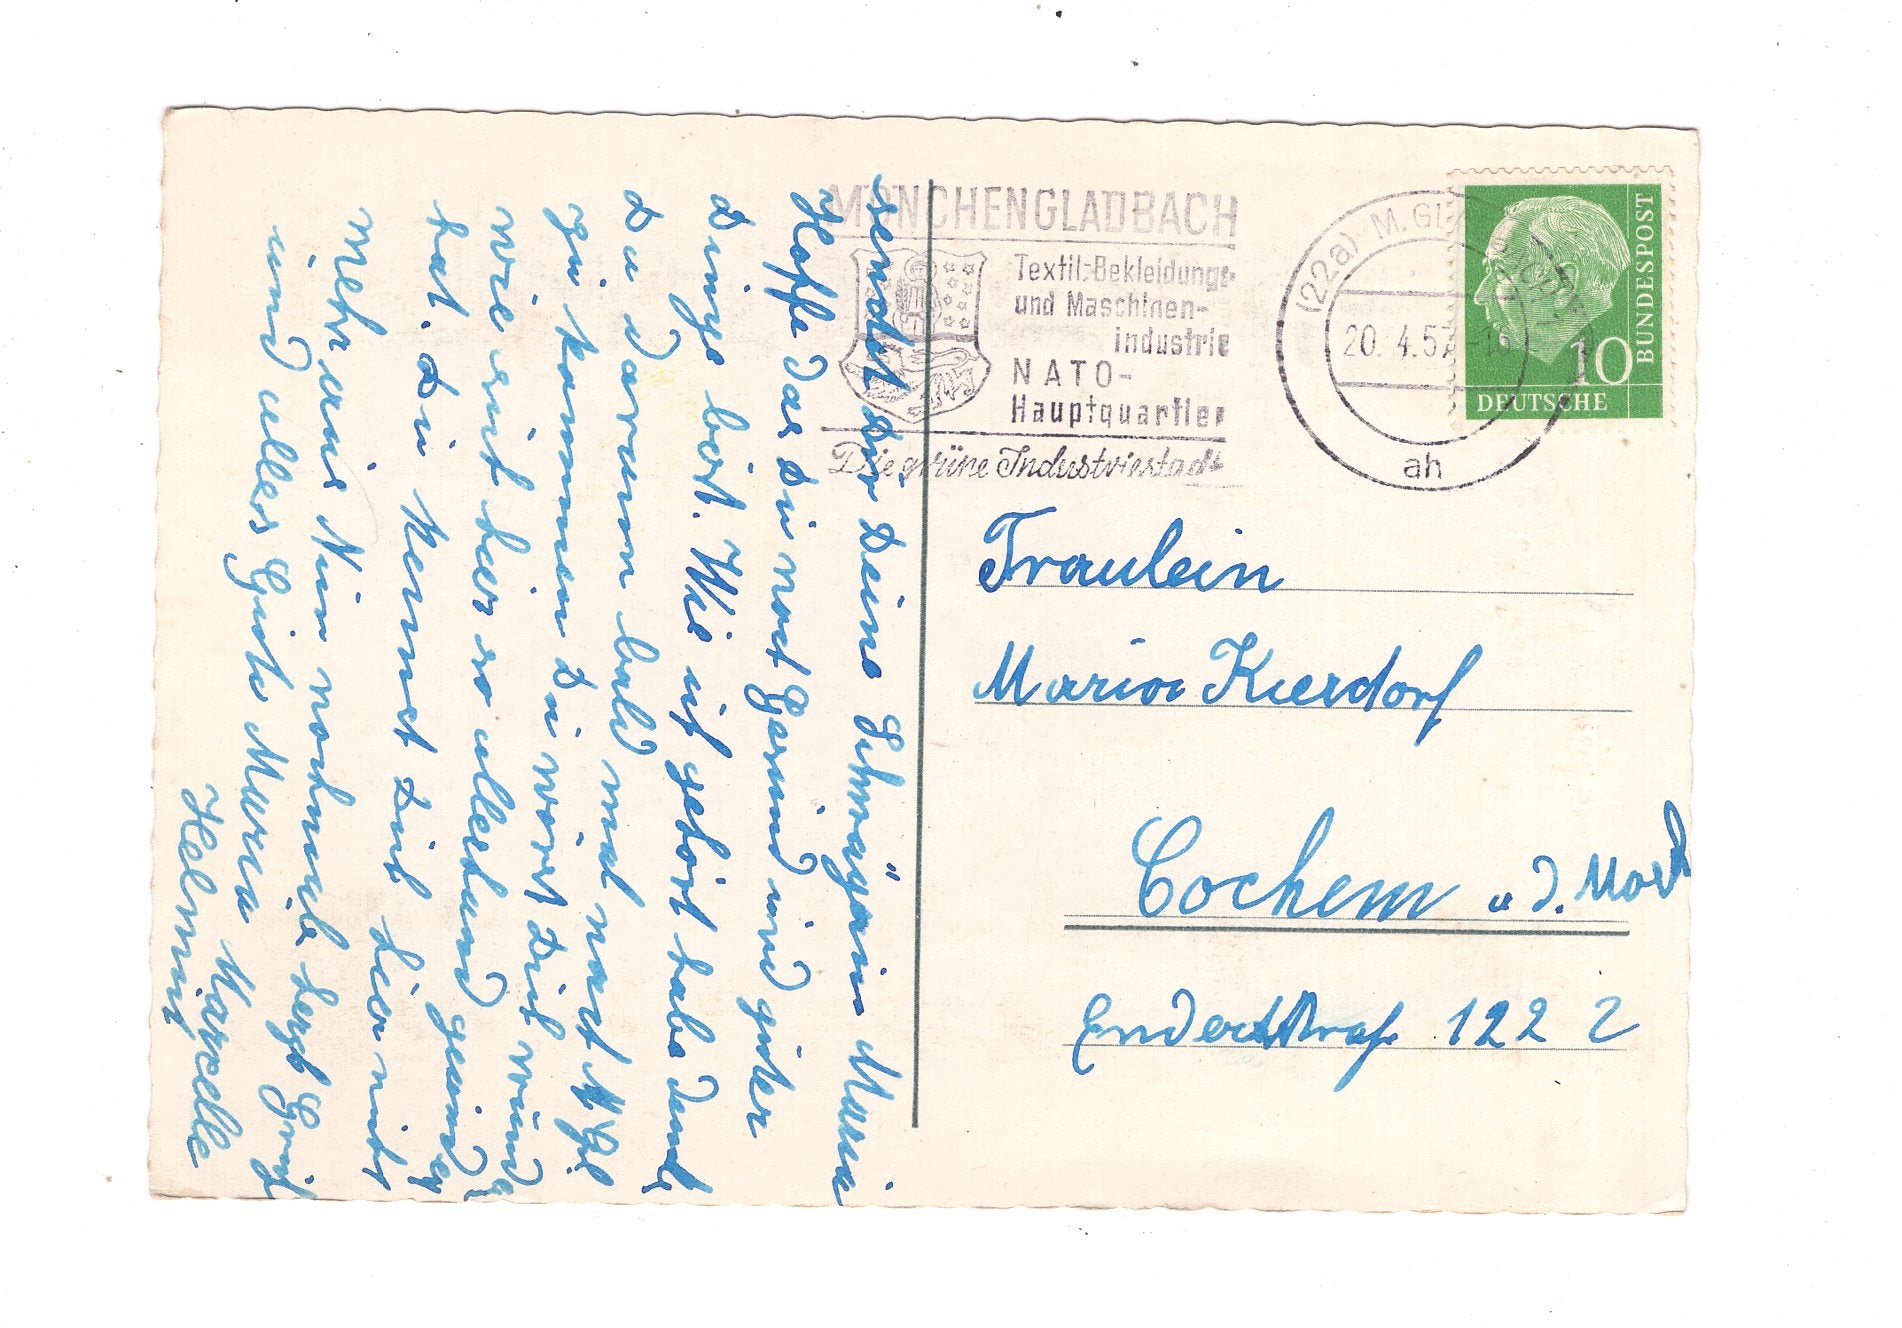 MÜNCHENGLADBACH
Textil-Bekleidungs-
und Maschinen-
industrie
NATO-
Hauptquartier
Die grüne Industriestadt
(22a) M.GL
20. 4.5
ah
DEUTSCHE
BUNDESPOST
10
sendet dir Deine
Hoffe das Du noch Gesund und guter
Dinge bist. Wie ich gehört habe
Du darum bald mal nach M.Gl.
zu kommen Du wirst Dich
wie sich hier so allerhand
hat. Du kennst Dich hier nicht
mehr aus Nun nochmals herzl
und alles Gute Marcelle
Helmut
Fräulein
Maria Kierdorf
Cochem a. d. Mosel
Enderstraße 122 2